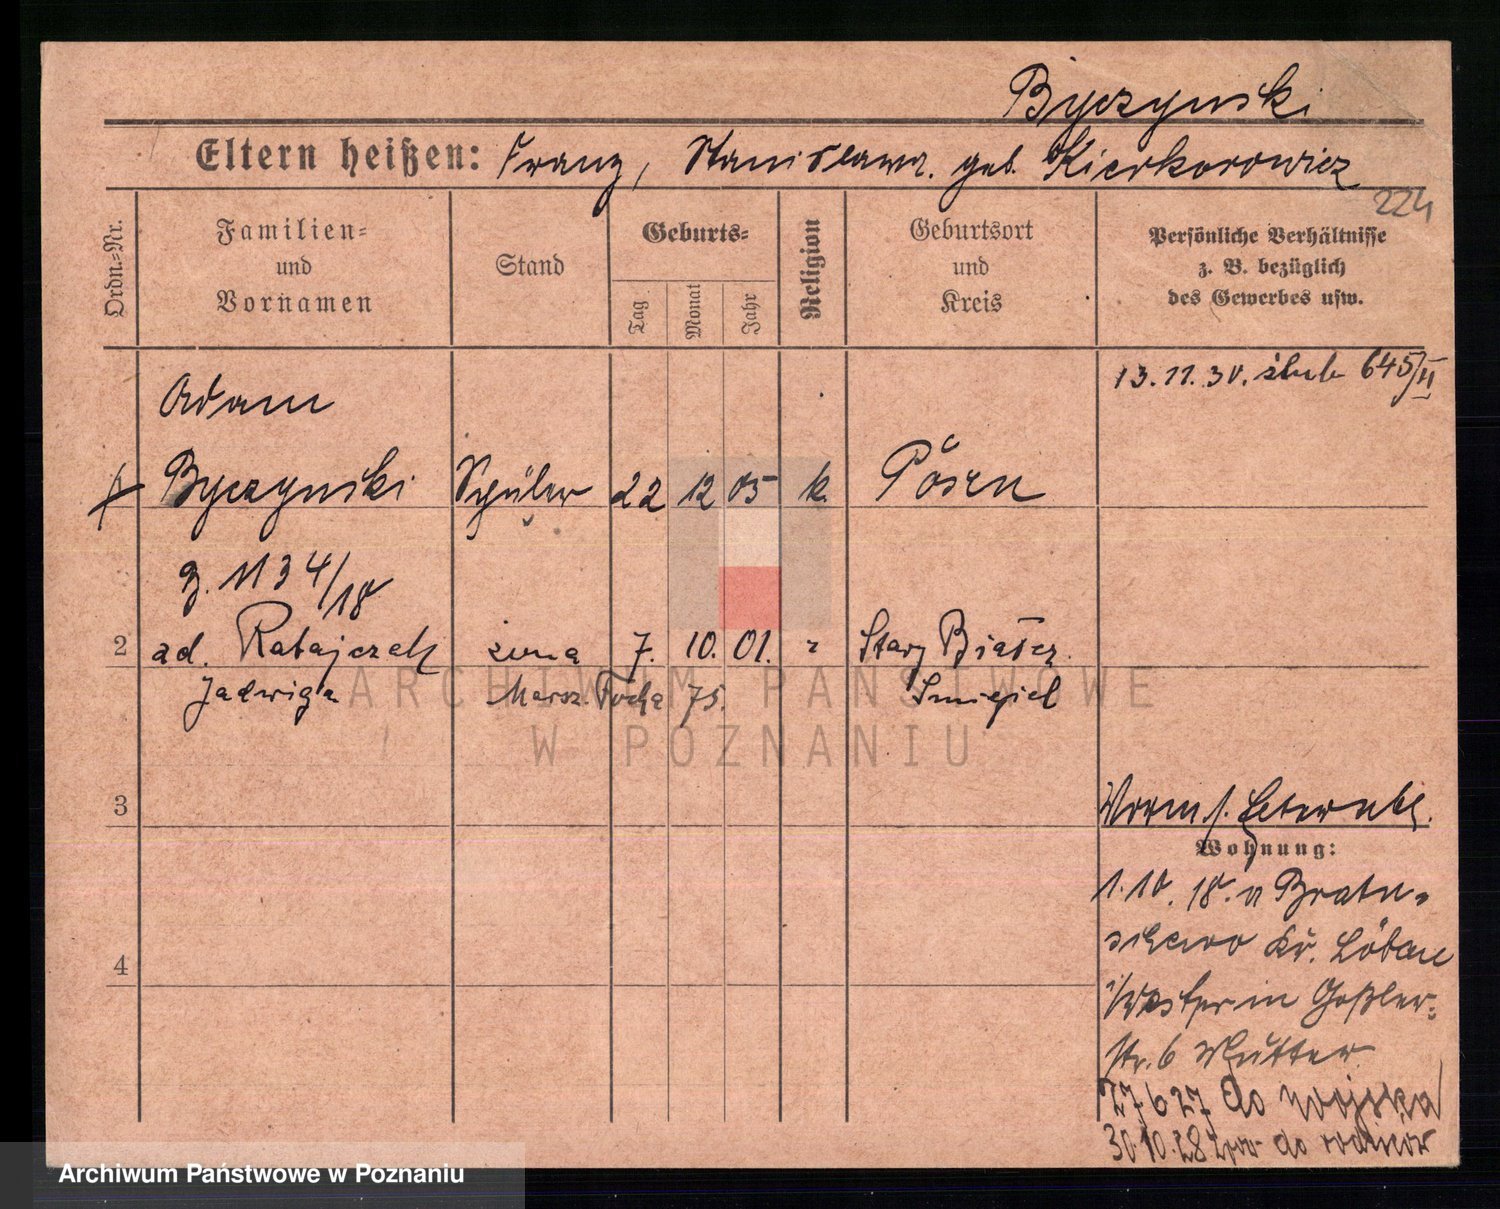 Byczynski
Eltern heißen: Franz, Stanislawa geb. Kierkorowicz
224
Ordn.-Nr.
Familien- und Vornamen
Stand
Geburts-
Tag
Monat
Jahr
Religion
Geburtsort und Kreis
Persönliche Verhältnisse
z. B. bezüglich
des Gewerbes usw.
13.11.30. ślub 645/II
Adam
Byczynski Schüler 22 12 05 k. Posen
z. 1134/18
2 ad. Ratajczak żona 7. 10. 01. Stary Białcz
Jadwiga Marsz. Focha 75. Śmigiel
3
Wohnung:
1.10.18. n Bratu-
schewo Kr. Löbau
4
Westpr in Goßler-
str. 6 Mutter
27 6 27 do wojska
30.10.28 do rodziców
ARCHIWUM PAŃSTWOWE
W POZNANIU
Archiwum Państwowe w Poznaniu